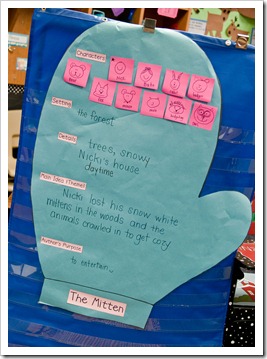 Characters
Nicki
Baba
Setting
the forest
Details
trees, snowy
Nicki's house
daytime
Main Idea (Theme)
Nicki lost his snow white
mittens in the woods and the
animals crawled in to get cozy
Author's Purpose
to entertain
The Mitten